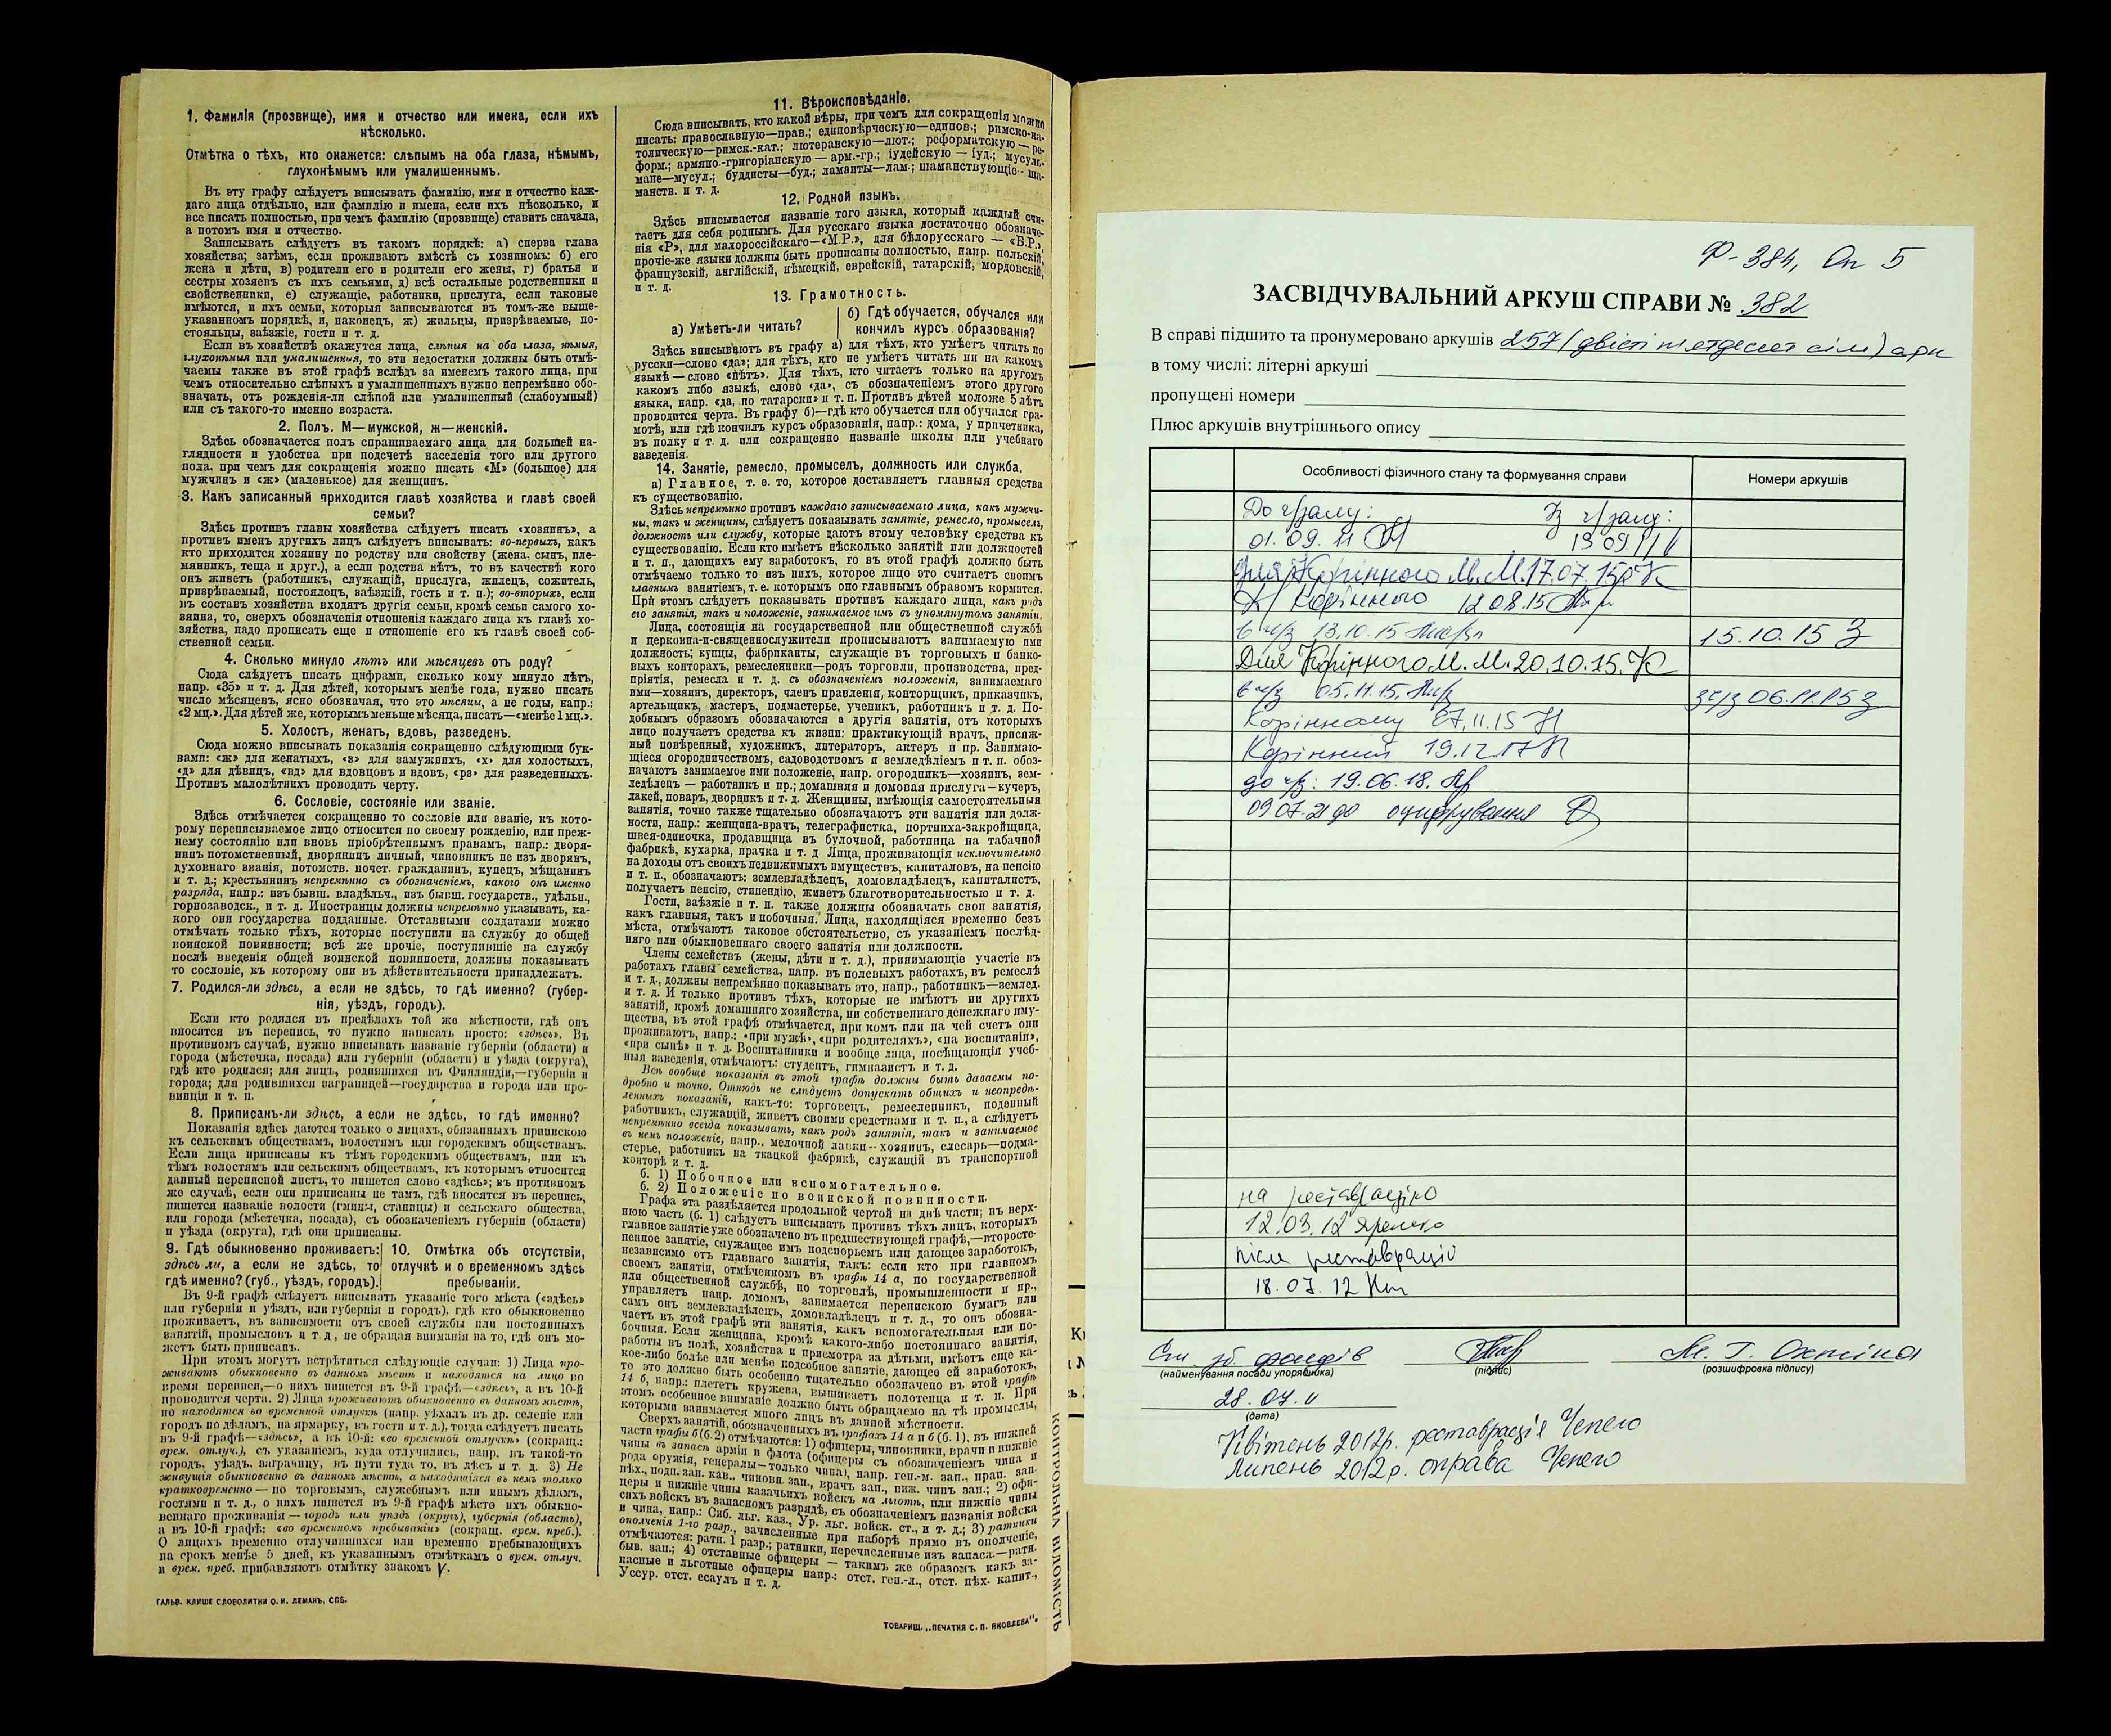 1. Фамилія (прозвище), имя и отчество или имена, если ихъ
нѣсколько.
Отмѣтка о тѣхъ, кто окажется: слѣпымъ на оба глаза, нѣмымъ,
глухонѣмымъ или умалишеннымъ.
Въ эту графу слѣдуетъ вписывать фамилію, имя и отчество каж-
даго лица отдѣльно, или фамилію и имена, если ихъ нѣсколько, и
все писать полностью, при чемъ фамилію (прозвище) ставить сначала,
а потомъ имя и отчество.
Записывать слѣдуетъ въ такомъ порядкѣ: а) сперва глава
хозяйства; затѣмъ, если проживаютъ вмѣстѣ съ хозяиномъ: б) его
жена и дѣти, в) родители его и родители его жены, г) братья и
сестры хозяевъ съ ихъ семьями, д) всѣ остальные родственники и
свойственники, е) служащіе, работники, прислуга, если таковые
имѣются, и ихъ семьи, которыя записываются въ томъ-же выше-
указанномъ порядкѣ, и, наконецъ, ж) жильцы, призрѣваемые, по-
стояльцы, заѣзжіе, гости и т. д.
Если въ хозяйствѣ окажутся лица, слѣпыя на оба глаза, нѣмыя,
глухонѣмыя или умалишенныя, то эти недостатки должны быть отмѣ-
чаемы также въ этой графѣ вслѣдъ за именемъ такого лица, при
чемъ относительно слѣпыхъ и умалишенныхъ нужно непремѣнно обо-
значать, отъ рожденія-ли слѣпой или умалишенный (слабоумный)
или съ такого-то именно возраста.
2. Полъ. М—мужской, ж—женскій.
Здѣсь обозначается полъ спрашиваемаго лица для большей на-
глядности и удобства при подсчетѣ населенія того или другого
пола, при чемъ для сокращенія можно писать «М» (большое) для
мужчинъ и «ж» (маленькое) для женщинъ.
3. Какъ записанный приходится главѣ хозяйства и главѣ своей
семьи?
Здѣсь противъ главы хозяйства слѣдуетъ писать «хозяинъ», а
противъ именъ другихъ лицъ слѣдуетъ вписывать: во-первыхъ, какъ
кто приходится хозяину по родству или свойству (жена, сынъ, пле-
мянникъ, теща и друг.), а если родства нѣтъ, то въ качествѣ кого
онъ живетъ (работникъ, служащій, прислуга, жилецъ, сожитель,
призрѣваемый, постоялецъ, заѣзжій, гость и т. п.); во-вторыхъ, если
въ составъ хозяйства входятъ другія семьи, кромѣ семьи самого хо-
зяина, то, сверхъ обозначенія отношенія каждаго лица къ главѣ хо-
зяйства, надо прописать еще и отношеніе его къ главѣ своей соб-
ственной семьи.
4. Сколько минуло лѣтъ или мѣсяцевъ отъ роду?
Сюда слѣдуетъ писать цифрами, сколько кому минуло лѣтъ,
напр. «35» и т. д. Для дѣтей, которымъ менѣе года, нужно писать
число мѣсяцевъ, ясно обозначая, что это мѣсяцы, а не годы, напр.:
«2 мц.». Для дѣтей же, которымъ меньше мѣсяца, писать—«менѣе 1 мц.».
5. Холостъ, женатъ, вдовъ, разведенъ.
Сюда можно вписывать показанія сокращенно слѣдующими бук-
вами: «ж» для женатыхъ, «з» для замужнихъ, «х» для холостыхъ,
«д» для дѣвицъ, «вд» для вдовцовъ и вдовъ, «рз» для разведенныхъ.
Противъ малолѣтнихъ проводить черту.
6. Сословіе, состояніе или званіе.
Здѣсь отмѣчается сокращенно то сословіе или званіе, къ кото-
рому переписываемое лицо относится по своему рожденію, или преж-
нему состоянію или вновь пріобрѣтеннымъ правамъ, напр.: дворя-
нинъ потомственный, дворянинъ личный, чиновникъ не изъ дворянъ,
духовнаго званія, потомств. почет. гражданинъ, купецъ, мѣщанинъ
и т. д.; крестьянинъ непремѣнно съ обозначеніемъ, какого онъ именно
разряда, напр.: изъ бывш. владѣльч., изъ бывш. государств., удѣльн.,
горнозаводск., и т. д. Иностранцы должны непремѣнно указывать, ка-
кого они государства подданные. Отставными солдатами можно
отмѣчать только тѣхъ, которые поступили на службу до общей
воинской повинности; всѣ же прочіе, поступившіе на службу
послѣ введенія общей воинской повинности, должны показывать
то сословіе, къ которому они въ дѣйствительности принадлежатъ.
7. Родился-ли здѣсь, а если не здѣсь, то гдѣ именно? (губер-
нія, уѣздъ, городъ).
Если кто родился въ предѣлахъ той же мѣстности, гдѣ онъ
вносится въ перепись, то нужно написать просто: «здѣсь». Въ
противномъ случаѣ, нужно вписывать названіе губерніи (области) и
города (мѣстечка, посада) или губерніи (области) и уѣзда (округа),
гдѣ кто родился; для лицъ, родившихся въ Финляндіи,—губерніи и
города; для родившихся заграницей—государства и города или про-
винціи и т. п.
8. Приписанъ-ли здѣсь, а если не здѣсь, то гдѣ именно?
Показанія здѣсь даются только о лицахъ, обязанныхъ припискою
къ сельскимъ обществамъ, волостямъ или городскимъ обществамъ.
Если лица приписаны къ тѣмъ городскимъ обществамъ, или къ
тѣмъ волостямъ или сельскимъ обществамъ, къ которымъ относится
данный переписной листъ, то пишется слово «здѣсь»; въ противномъ
же случаѣ, если они приписаны не тамъ, гдѣ вносятся въ перепись,
пишется названіе волости (гмины, станицы) и сельскаго общества,
или города (мѣстечка, посада), съ обозначеніемъ губерніи (области)
и уѣзда (округа), гдѣ они приписаны.
9. Гдѣ обыкновенно проживаетъ:
здѣсь ли, а если не здѣсь, то
гдѣ именно? (губ., уѣздъ, городъ).
10. Отмѣтка объ отсутствіи,
отлучкѣ и о временномъ здѣсь
пребываніи.
Въ 9-й графѣ слѣдуетъ вписывать указаніе того мѣста («здѣсь»
или губернія и уѣздъ, или губернія и городъ), гдѣ кто обыкновенно
проживаетъ, въ зависимости отъ своей службы или постоянныхъ
занятій, промысловъ и т. д., не обращая вниманія на то, гдѣ онъ мо-
жетъ быть приписанъ.
При этомъ могутъ встрѣтиться слѣдующіе случаи: 1) Лица про-
живаютъ обыкновенно въ данномъ мѣстѣ и находятся на лицо во
время переписи,—о нихъ пишется въ 9-й графѣ—«здѣсь», а въ 10-й
проводится черта. 2) Лица проживаютъ обыкновенно въ данномъ мѣстѣ,
но находятся во временной отлучкѣ (напр. уѣхалъ въ др. селеніе или
городъ по дѣламъ, на ярмарку, въ гости и т. д.), тогда слѣдуетъ писать
въ 9-й графѣ—«здѣсь», а въ 10-й: «во временной отлучкѣ» (сокращ.:
врем. отлуч.), съ указаніемъ, куда отлучились, напр. въ такой-то
городъ, уѣздъ, заграницу, въ пути туда то, въ лѣсъ и т. д. 3) Не
живущія обыкновенно въ данномъ мѣстѣ, а находящіяся въ немъ только
кратковременно — по торговымъ, служебнымъ или инымъ дѣламъ,
гостями и т. д., о нихъ пишется въ 9-й графѣ мѣсто ихъ обыкно-
веннаго проживанія — городъ или уѣздъ (округъ), губернія (область),
а въ 10-й графѣ: «во временномъ пребываніи» (сокращ. врем. преб.).
О лицахъ временно отлучившихся или временно пребывающихъ
на срокъ менѣе 5 дней, къ указаннымъ отмѣткамъ о врем. отлуч.
и врем. преб. прибавляютъ отмѣтку знакомъ V.
ГАЛЬВ. КЛИШЕ СЛОВОЛИТНИ О. И. ЛЕМАНЪ, СПБ.
11. Вѣроисповѣданіе.
Сюда вписывать, кто какой вѣры, при чемъ для сокращенія можно
писать: православную—прав.; единовѣрческую—единов.; римско-ка-
толическую—римск.-кат.; лютеранскую—лют.; реформатскую — ре-
форм.; армяно-григоріанскую — арм.-гр.; іудейскую — іуд.; мусуль-
мане—мусул.; буддисты—буд.; ламаиты—лам.; шаманствующіе—ша-
манств. и т. д.
12. Родной языкъ.
Здѣсь вписывается названіе того языка, который каждый счи-
таетъ для себя роднымъ. Для русскаго языка достаточно обозначе-
нія «Р», для малороссійскаго—«М.Р.», для бѣлорусскаго — «Б.Р.»,
прочіе-же языки должны быть прописаны полностью, напр. польскій,
французскій, англійскій, нѣмецкій, еврейскій, татарскій, мордовскій,
и т. д.
13. Грамотность.
а) Умѣетъ-ли читать?
б) Гдѣ обучается, обучался или
кончилъ курсъ образованія?
Здѣсь вписываютъ въ графу а) для тѣхъ, кто умѣетъ читать по
русски—слово «да»; для тѣхъ, кто не умѣетъ читать ни на какомъ
языкѣ — слово «нѣтъ». Для тѣхъ, кто читаетъ только на другомъ
какомъ либо языкѣ, слово «да», съ обозначеніемъ этого другого
языка, напр. «да, по татарски» и т. п. Противъ дѣтей моложе 5 лѣтъ
проводится черта. Въ графу б)—гдѣ кто обучается или обучался гра-
мотѣ, или гдѣ кончилъ курсъ образованія, напр.: дома, у причетника,
въ полку и т. д. или сокращенно названіе школы или учебнаго
заведенія.
14. Занятіе, ремесло, промыселъ, должность или служба.
а) Главное, т. е. то, которое доставляетъ главныя средства
къ существованію.
Здѣсь непремѣнно противъ каждаго записываемаго лица, какъ мужчи-
ны, такъ и женщины, слѣдуетъ показывать занятіе, ремесло, промыселъ,
должность или службу, которые даютъ этому человѣку средства къ
существованію. Если кто имѣетъ нѣсколько занятій или должностей
и т. п., дающихъ ему заработокъ, то въ этой графѣ должно быть
отмѣчаемо только то изъ нихъ, которое лицо это считаетъ своимъ
главнымъ занятіемъ, т. е. которымъ оно главнымъ образомъ кормится.
При этомъ слѣдуетъ показывать противъ каждаго лица, какъ родъ
его занятія, такъ и положеніе, занимаемое имъ въ упомянутомъ занятіи.
Лица, состоящія на государственной или общественной службѣ
и церковно-и-священнослужители прописываютъ занимаемую ими
должность; купцы, фабриканты, служащіе въ торговыхъ и банко-
выхъ конторахъ, ремесленники—родъ торговли, производства, пред-
пріятія, ремесла и т. д. съ обозначеніемъ положенія, занимаемаго
ими—хозяинъ, директоръ, членъ правленія, конторщикъ, приказчикъ,
артельщикъ, мастеръ, подмастерье, ученикъ, работникъ и т. д. По-
добнымъ образомъ обозначаются и другія занятія, отъ которыхъ
лицо получаетъ средства къ жизни: практикующій врачъ, присяж-
ный повѣренный, художникъ, литераторъ, актеръ и пр. Занимаю-
щіеся огородничествомъ, садоводствомъ и земледѣліемъ и т. п. обоз-
начаютъ занимаемое ими положеніе, напр. огородникъ—хозяинъ, зем-
ледѣлецъ — работникъ и пр.; домашняя и домовая прислуга—кучеръ,
лакей, поваръ, дворникъ и т. д. Женщины, имѣющія самостоятельныя
занятія, точно также тщательно обозначаютъ эти занятія или долж-
ности, напр.: женщина-врачъ, телеграфистка, портниха-закройщица,
швея-одиночка, продавщица въ булочной, работница на табачной
фабрикѣ, кухарка, прачка и т. д. Лица, проживающія исключительно
на доходы отъ своихъ недвижимыхъ имуществъ, капиталовъ, на пенсію
и т. п., обозначаютъ: землевладѣлецъ, домовладѣлецъ, капиталистъ,
получаетъ пенсію, стипендію, живетъ благотворительностью и т. д.
Гости, заѣзжіе и т. п. также должны обозначать свои занятія,
какъ главныя, такъ и побочныя. Лица, находящіяся временно безъ
мѣста, отмѣчаютъ таковое обстоятельство, съ указаніемъ послѣд-
няго или обыкновеннаго своего занятія или должности.
Члены семействъ (жены, дѣти и т. д.), принимающіе участіе въ
работахъ главы семейства, напр. въ полевыхъ работахъ, въ ремеслѣ
и т. д., должны непремѣнно показывать это, напр., работникъ—землед.
и т. д. И только противъ тѣхъ, которые не имѣютъ ни другихъ
занятій, кромѣ домашняго хозяйства, ни собственнаго денежнаго иму-
щества, въ этой графѣ отмѣчается, при комъ или на чей счетъ они
проживаютъ, напр.: «при мужѣ», «при родителяхъ», «на воспитаніи»,
«при сынѣ» и т. д. Воспитанники и вообще лица, посѣщающія учеб-
ныя заведенія, отмѣчаютъ: студентъ, гимназистъ и т. д.
Всѣ вообще показанія въ этой графѣ должны быть даваемы по-
дробно и точно. Отнюдь не слѣдуетъ допускать общихъ и неопредѣ-
ленныхъ показаній, какъ-то: торговецъ, ремесленникъ, поденный
работникъ, служащій, живетъ своими средствами и т. п., а слѣдуетъ
непремѣнно всегда показывать, какъ родъ занятія, такъ и занимаемое
въ немъ положеніе, напр., мелочной лавки—хозяинъ, слесарь—подма-
стерье, работникъ на ткацкой фабрикѣ, служащій въ транспортной
конторѣ и т. д.
б. 1) Побочное или вспомогательное.
б. 2) Положеніе по воинской повинности.
Графа эта раздѣляется продольной чертой на двѣ части; въ верх-
нюю часть (б. 1) слѣдуетъ вписывать противъ тѣхъ лицъ, которыхъ
главное занятіе уже обозначено въ предшествующей графѣ,—второсте-
пенное занятіе, служащее имъ подспорьемъ или дающее заработокъ,
независимо отъ главнаго занятія, такъ: если кто при главномъ
своемъ занятіи, отмѣченномъ въ графѣ 14 а, по государственной
или общественной службѣ, по торговлѣ, промышленности и пр.,
управляетъ напр. домомъ, занимается перепискою бумагъ или
самъ онъ землевладѣлецъ, домовладѣлецъ и т. д., то онъ обозна-
чаетъ въ этой графѣ эти занятія, какъ вспомогательныя или по-
бочныя. Если женщина, кромѣ какого-либо постояннаго занятія,
работы въ полѣ, хозяйства и присмотра за дѣтьми, имѣетъ еще ка-
кое-либо болѣе или менѣе подсобное занятіе, дающее ей заработокъ,
то это должно быть особенно тщательно обозначено въ этой графѣ
14 б, напр.: плететъ кружева, вышиваетъ полотенца и т. п. При
этомъ особенное вниманіе должно быть обращаемо на тѣ промыслы,
которыми занимается много лицъ въ данной мѣстности.
Сверхъ занятій, обозначенныхъ въ графахъ 14 а и б (б. 1), въ нижней
части графы б (б. 2) отмѣчаются: 1) офицеры, чиновники, врачи и нижніе
чины въ запасѣ арміи и флота (офицеры съ обозначеніемъ чина и
рода оружія, генералы—только чина), напр. ген.-м. зап., прап. зап.
пѣх., подп. зап. кав., чиновн. зап., врачъ зап., ниж. чинъ зап.; 2) офи-
церы и нижніе чины казачьихъ войскъ на льготѣ, или нижніе чины
сихъ войскъ въ запасномъ разрядѣ, съ обозначеніемъ названія войска
и чина, напр.: Сиб. льг. каз., Ур. льг. войск. ст., и т. д.; 3) ратники
ополченія 1-го разр., зачисленные при наборѣ прямо въ ополченіе,
отмѣчаются: ратн. 1 разр.; ратники, перечисленные изъ запаса—ратн.
быв. зап.; 4) отставные офицеры — такимъ же образомъ какъ за-
пасные и льготные офицеры напр.: отст. ген.-л., отст. пѣх. капит.,
Уссур. отст. есаулъ и т. д.
ТОВАРИЩ. „ПЕЧАТНЯ С. П. ЯКОВЛЕВА".
КОНТРОЛЬНА ВІДОМІСТЬ
Ф-384, Оп 5
ЗАСВІДЧУВАЛЬНИЙ АРКУШ СПРАВИ № 382
В справі підшито та пронумеровано аркушів 257 (двісті п'ятдесят сім) арк
в тому числі: літерні аркуші
пропущені номери
Плюс аркушів внутрішнього опису
Особливості фізичного стану та формування справи
Номери аркушів
До ч/залу: Із ч/залу:
01.09.11 13 09 11
Для Корінного М.М. 17.07.15
Корінного 12 08.15
в ч/з 13.10.15
15.10.15 З
Для Корінного М.М. 20.10.15.
в ч/з 05.11.15.
з ч/з 06.11.15 З
Корінному 27.11.15
Корінний 19.12.17
до ч/з: 19.06.18.
09.07.21 до оцифрування
на реставрацію
12.03.12
після реставрації
18.07.12
Ст. зб. фондів
М. Г. Охтіна
(найменування посади упорядника)
(підпис)
(розшифровка підпису)
28.07.11
(дата)
Квітень 2012р. реставрація Чепего
Липень 2012р. оправа Чепего